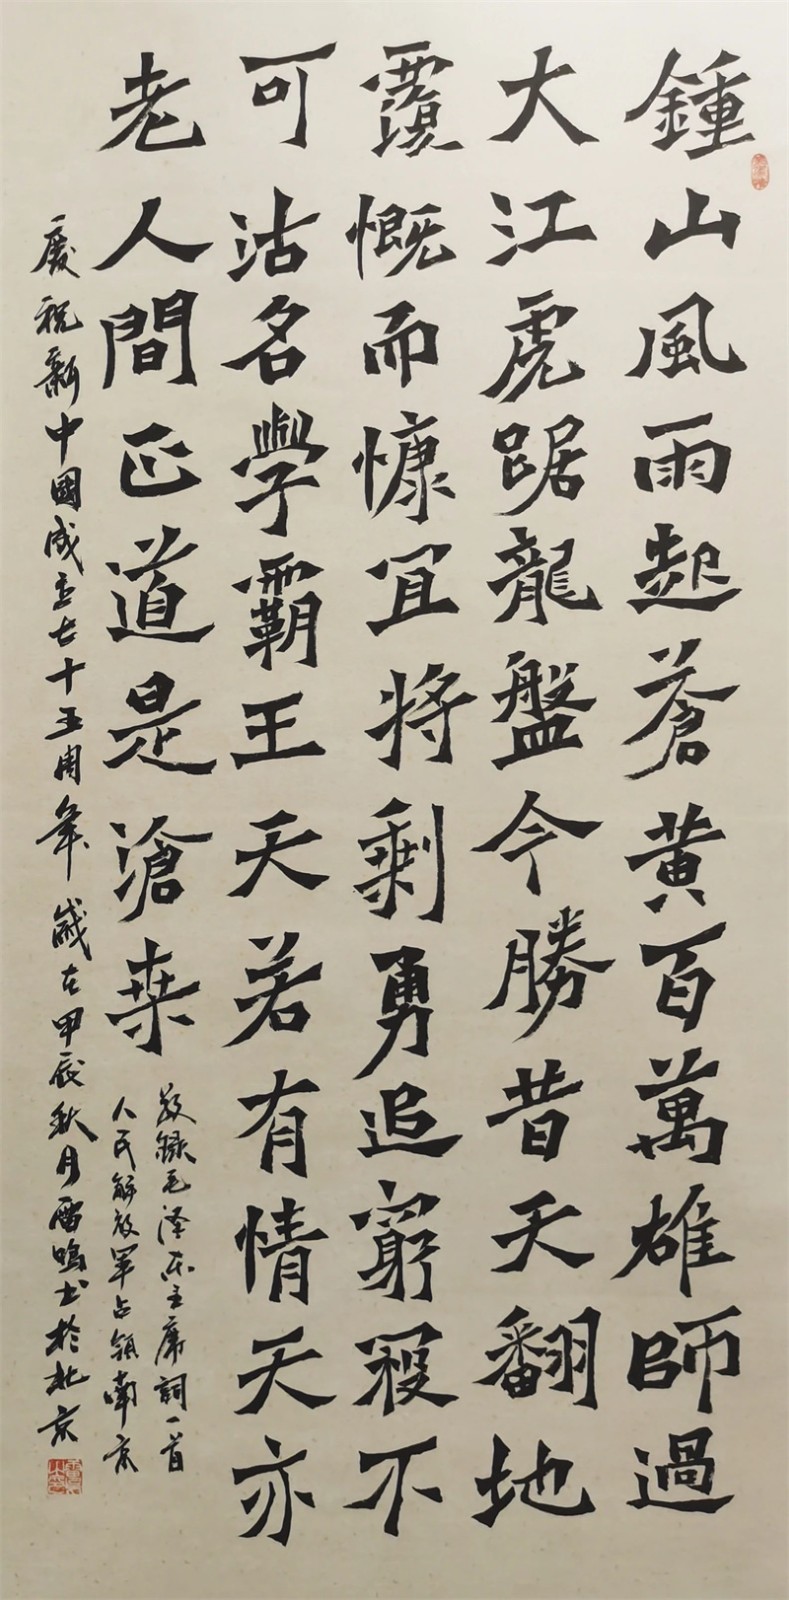 鍾山風雨起蒼黃百萬雄師過
大江虎踞龍盤今勝昔天翻地
覆慨而慷宜将剩勇追窮寇不
可沽名學霸王天若有情天亦
老人間正道是滄桑
敬録毛泽东主席詞一首
人民解放军占領南京
慶祝新中國成立七十五周年歲在甲辰秋月雷鳴书於北京